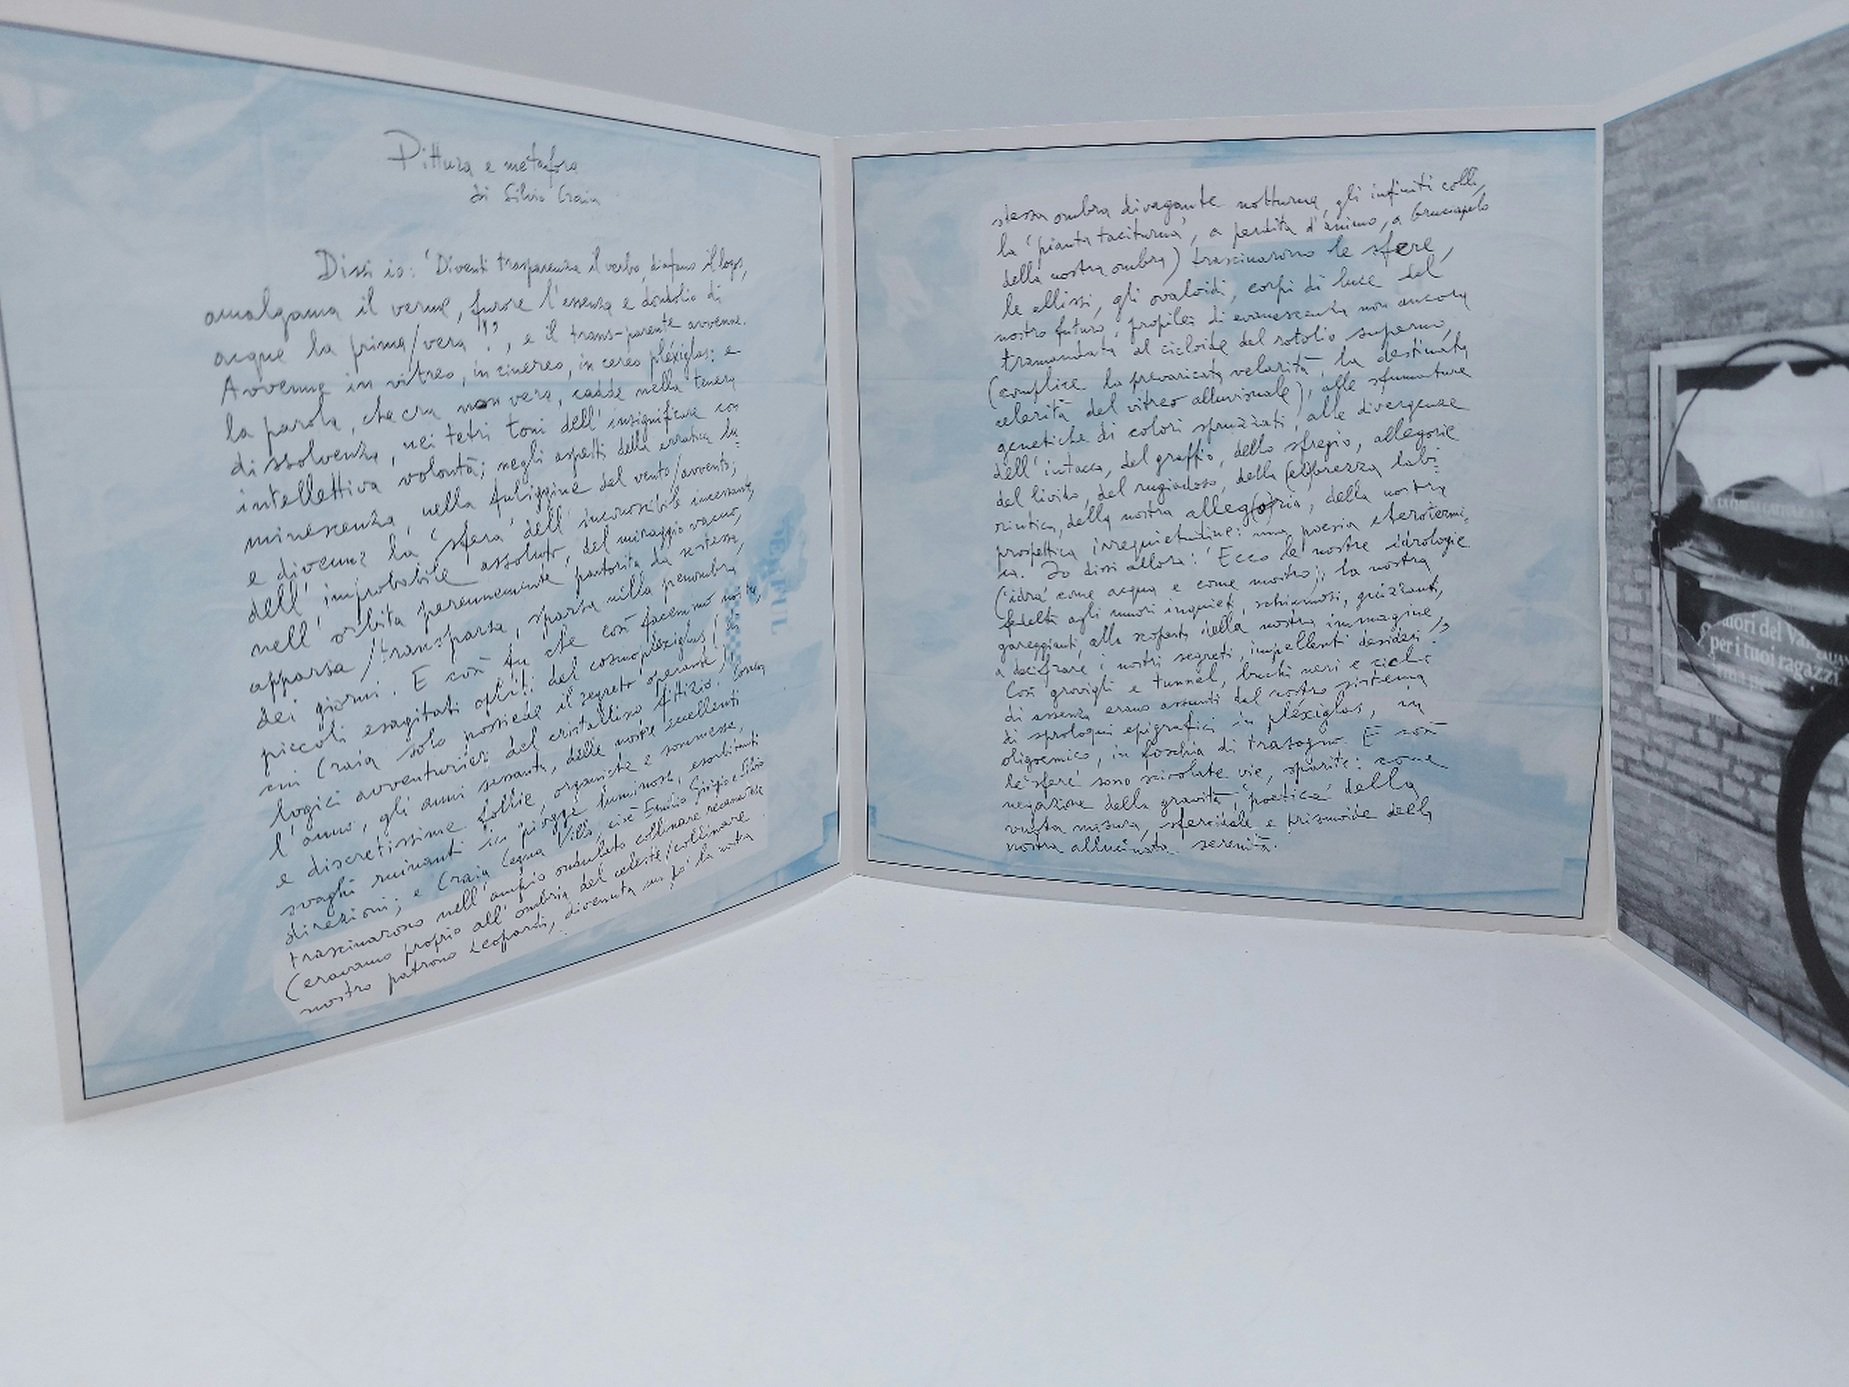 Pittura e metafora
di Silvio Craia
Dissi io: 'Diventi trasparenza il verbo, diafano il logos,
amalgama il verme, furore l'essenza e dondolio di
acque la prima/vera!', e il trans-parente avvenne.
Avvenne in vitreo, in cinereo, in cereo plexiglas: e
la parola, che era non vera, cadde nella tenera
dissolvenza, nei tetri toni dell'insignificare con
intellettiva volontà; negli aspetti della erratica lu-
minescenza, nella fuliggine del vento/avvento;
e divenne la 'sfera' dell'inconoscibile incessante,
dell'improbabile assoluto, del miraggio vacuo,
nell'orbita perennemente partorita da se stessa,
apparsa/transparsa, sparsa nella penombra
dei giorni. E così fu che così facemmo noi,
piccoli esagitati opliti del cosmoplexiglas (di
cui Craia solo possiede il segreto operante)
logici avventurieri del cristallino fittizio. Correa
l'anno, gli anni sessanta, delle morte eccellenti
e discretissime follie, organiche e sommesse,
svaghi ruinanti in piogge luminose, esorbitanti
direzioni; e Craia Cegna Villa, cioè Emilio Giorgio e Silvio
trascinarono nell'ampio ondulato collinare recanatese
(eravamo proprio all'ombra del celeste/collinare
nostro patrono Leopardi, divenuta un po' la nostra
stessa ombra divagante notturna, gli infiniti colli,
la 'pianta taciturna', a perdita d'animo, a bruciapelo
della nostra ombra) trascinarono le sfere,
le ellissi, gli ovaloidi, corpi di luce del
nostro futuro, propilei di evanescenza non ancora
tramandata al cicloide del rotolio supremo,
(complice la prevaricata velarità, la destinata
celerità del vitreo alluvionale), alle sfumature
genetiche di colori spruzzati, alle divergenze
dell'intacco, del graffio, dello sfregio, allegorie
del livido, del rugiadoso, della (eb)brezza labi-
rintica, della nostra alleg(o)ria, della nostra
prospettica irrequietudine: una poesia eterotermi-
ca. Io dissi allora: 'Ecco le nostre idrologie
('idra' come acqua e come mostro), la nostra
fedeltà agli umori inquieti, schiumosi, guizzanti,
gareggianti, alla scoperta della nostra immagine,
a decifrare i nostri segreti, impellenti desideri'.
Così grovigli e tunnel, buchi neri e cicli
di assenza erano assunti dal nostro sistema
di sproloqui epigrafici in plexiglas, in
oligoemico, in foschia di trasogno. E così
le 'sfere' sono scivolate vie, sparite: come
negazione della gravità, 'poetica' della
vuota misura, sferoidale e prismoide della
nostra allucinata serenità.
per i tuoi ragazzi